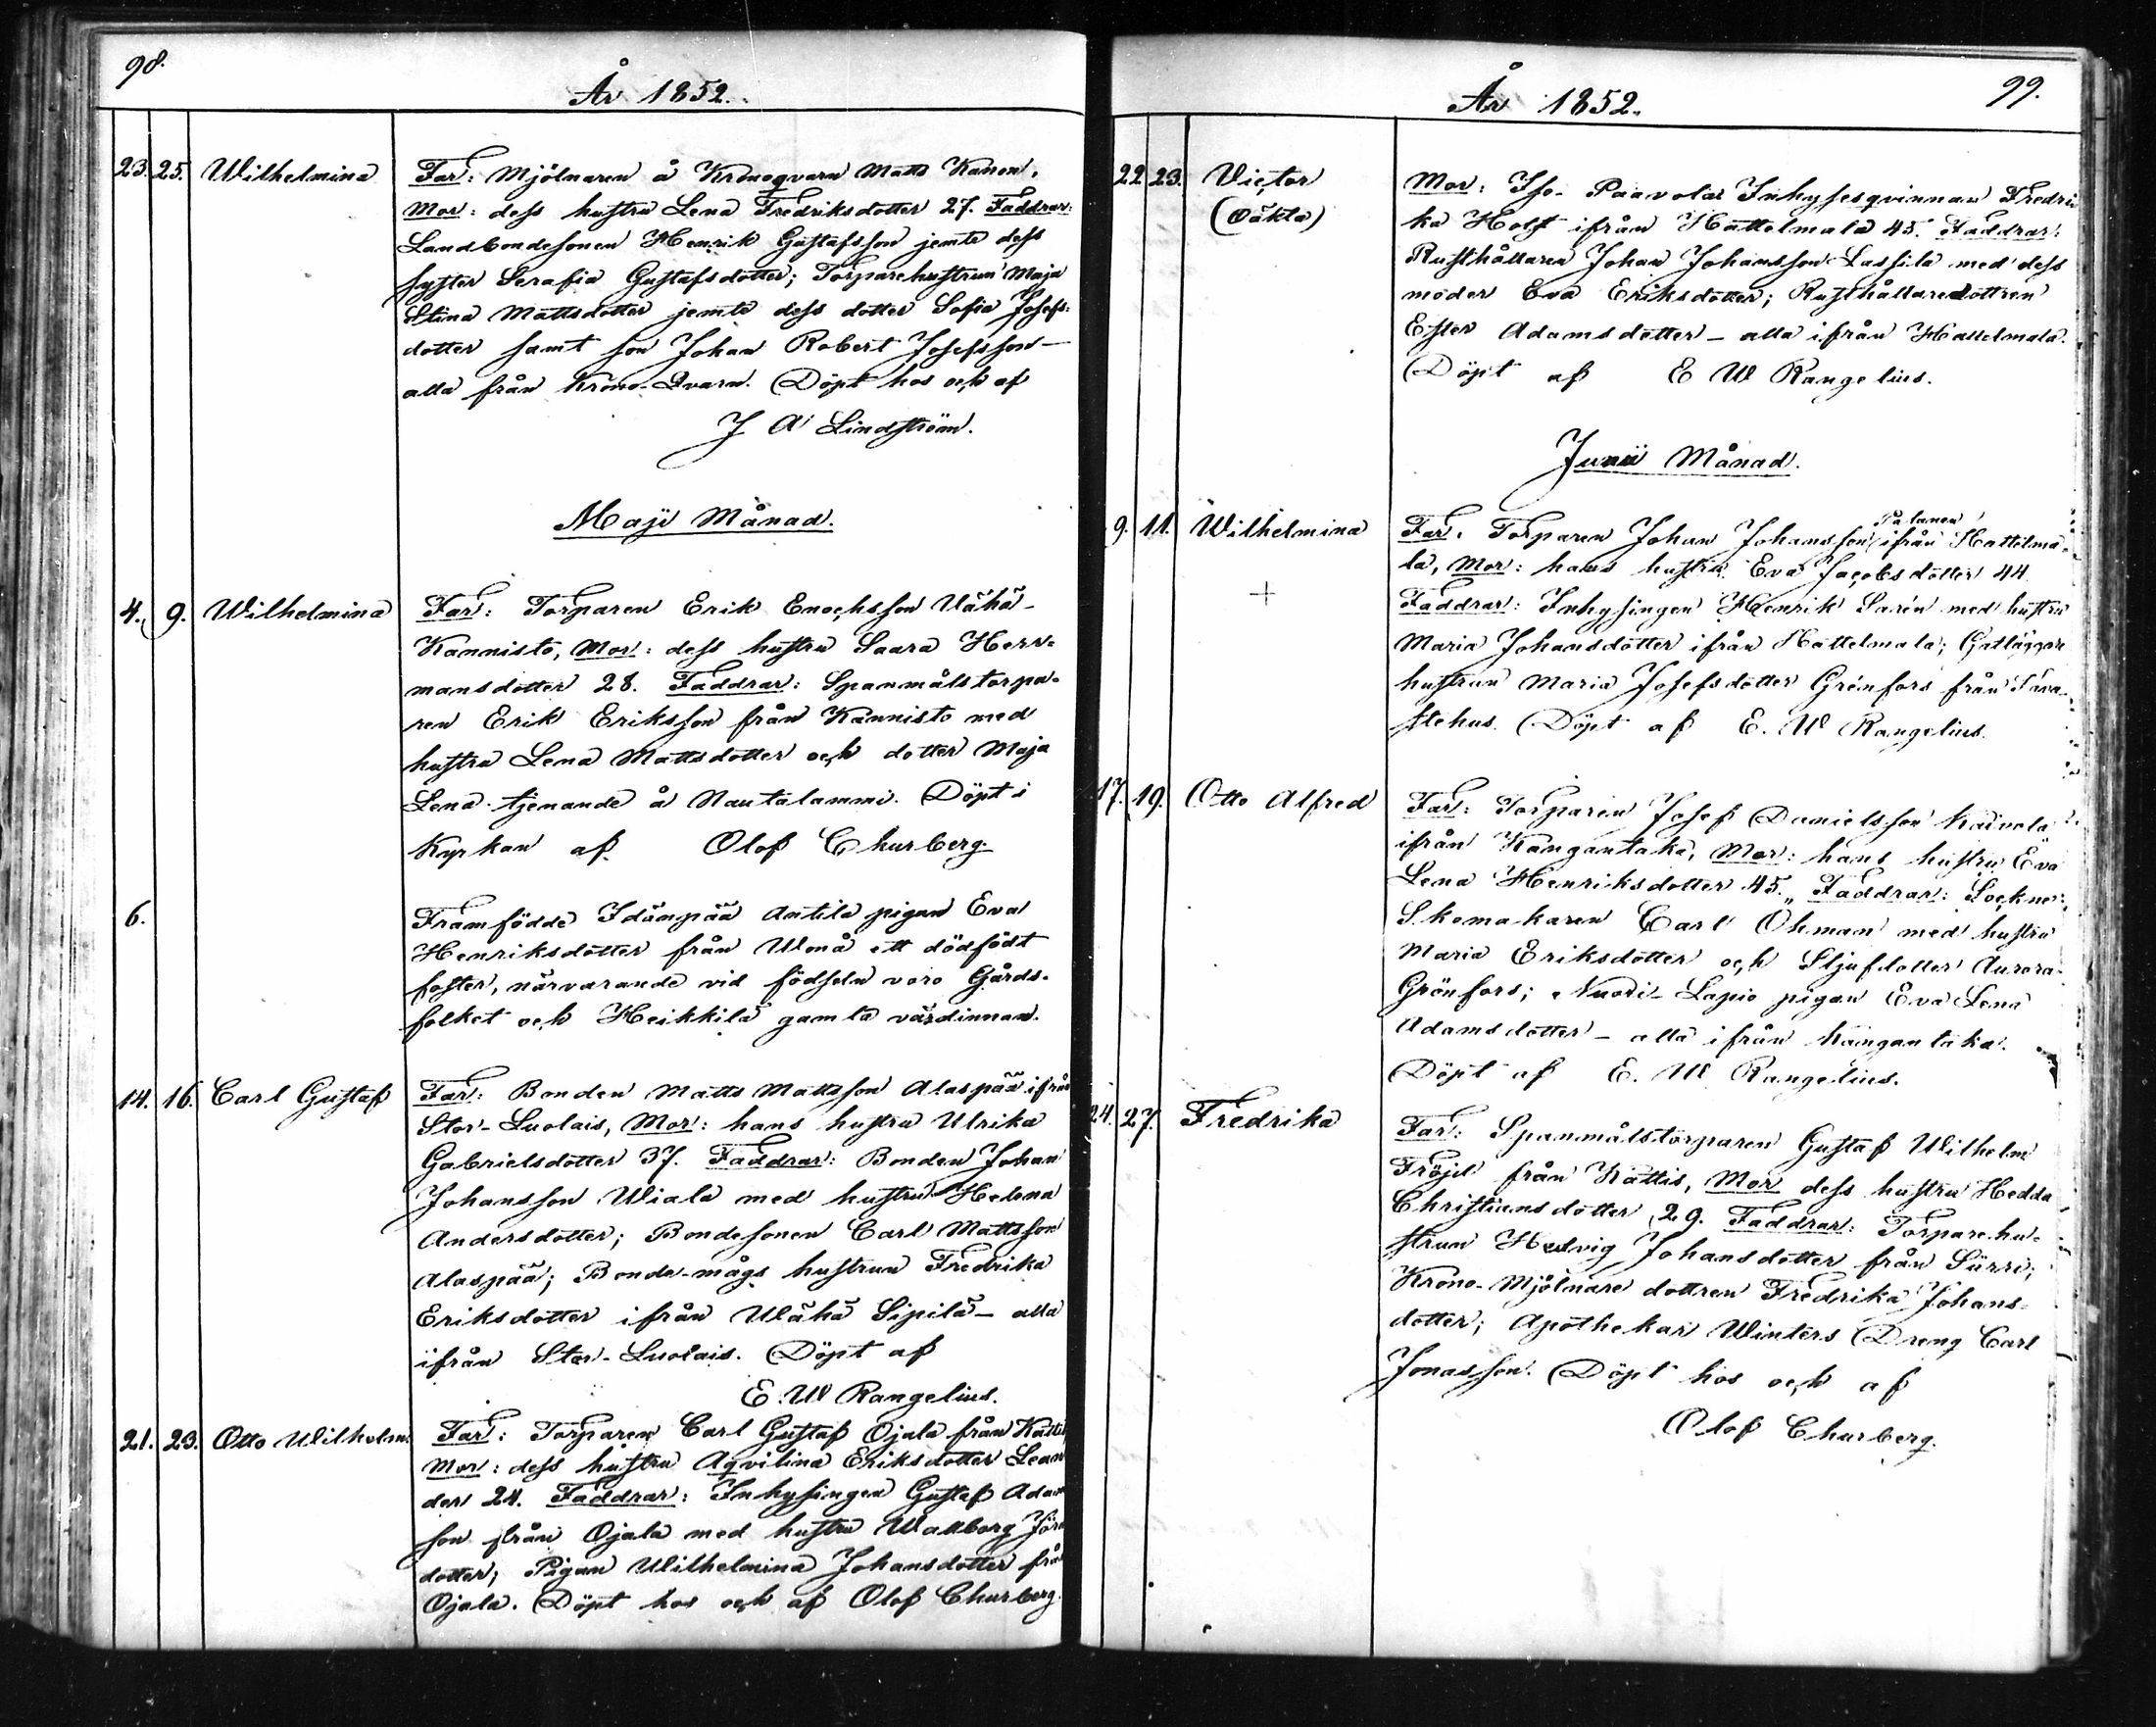 98.
År 1852.
23. 25. Wilhelmina Far: Mjölnaren å Kronoqvarn Matts Kanon,
Mor: dess hustru Lena Fredriksdotter 27. Faddrar:
Landbondesonen Henrik Gustafsson jemte dess
syster Serafia Gustafsdotter; Torparehustrun Maja
Stina Mattsdotter jemte dess dotter Sofia Josefs-
dotter samt son Johan Robert Josefsson –
alla från Krono-Qvarn. Döpt hos och af
J A Lindström.
Maji Månad.
4. 9. Wilhelmina Far: Torparen Erik Enochsson Vähä-
Kannisto, Mor: dess hustru Saara Herr-
mansdotter 28. Faddrar: Spanmålstorpa-
ren Erik Eriksson från Kannisto med
hustru Lena Mattsdotter och dotter Maja
Lena tjenande å Nautalammi. Döpt i
Kyrkan af Olof Churberg.
6. Framfödde Idänpää Antila pigan Eva
Henriksdotter från Wonå ett dödfödt
foster, närvarande vid födseln voro Gårds-
folket och Heikkilä gamla värdinnan.
14. 16. Carl Gustaf Far: Bonden Matts Mattsson Alaspää ifrån
Stor-Luolais, Mor: hans hustru Ulrika
Gabrielsdotter 37. Faddrar: Bonden Johan
Johansson Wiala med hustru Helena
Andersdotter; Bondesonen Carl Mattsson
Alaspää; Bonde-mågs hustrun Fredrika
Eriksdotter ifrån Wähä Sipilä – alla
ifrån Stor-Luolais. Döpt af
E. W Rangelius.
21. 23. Otto Wilhelm Far: Torparen Carl Gustaf Ojala från Kattis
Mor: dess hustru Aqvilina Eriksdotter Lean
der 24. Faddrar: Inhysingen Gustaf Adam
son från Ojala med hustru Wallborg
dotter; Pigan Wilhelmina Johansdotter från
Ojala. Döpt hos och af Olof Churberg.
99.
År 1852.
22 23. Victor Mor: Iso-Paavola Inhysesqvinnan Fredri
(Oäkta) ka Holf ifrån Hattelmala 45. Faddrar:
Rusthållaren Johan Johansson Lassila med dess
moder Eva Eriksdotter; Rusthållaredottren
Ester Adamsdotter – alla ifrån Hattelmala.
Döpt af E W Rangelius.
Junii Månad.
9. 11. Wilhelmina Far: Torparen Johan Johansson Palanen ifrån Hattelma-
la, Mor: hans hustru Eva Jacobsdotter 44.
+ Faddrar: Inhysingen Henrik Sarén med hustru
Maria Johansdotter ifrån Hattelmala; Gatläggare
hustrun Maria Josefsdotter Grönfors från Tava-
stehus. Döpt af E. W Rangelius.
17. 19. Otto Alfred Far: Torparen Josef Danielsson
ifrån Kangantaka, Mor: hans hustru Eva
Lena Henriksdotter 45. Faddrar: Sockne-
Skomakaren Carl Öhman med hustru
Maria Eriksdotter och Stjufdotter Aurora
Grönfors; Nuodi-Lapio pigan Eva Lena
Adamsdotter – alla ifrån Kangantaka.
Döpt af E. W Rangelius.
24. 27. Fredrika Far: Spanmålstorparen Gustaf Wilhelm
Fröjd från Kattis, Mor dess hustru Hedda
Christiansdotter, 29. Faddrar: Torparehu-
strun Hedvig Johansdotter från Siirri;
Krono-Mjölnare dottren Fredrika Johans-
dotter; Apothekar Winters Dreng Carl
Jonasson. Döpt hos och af
Olof Churberg.